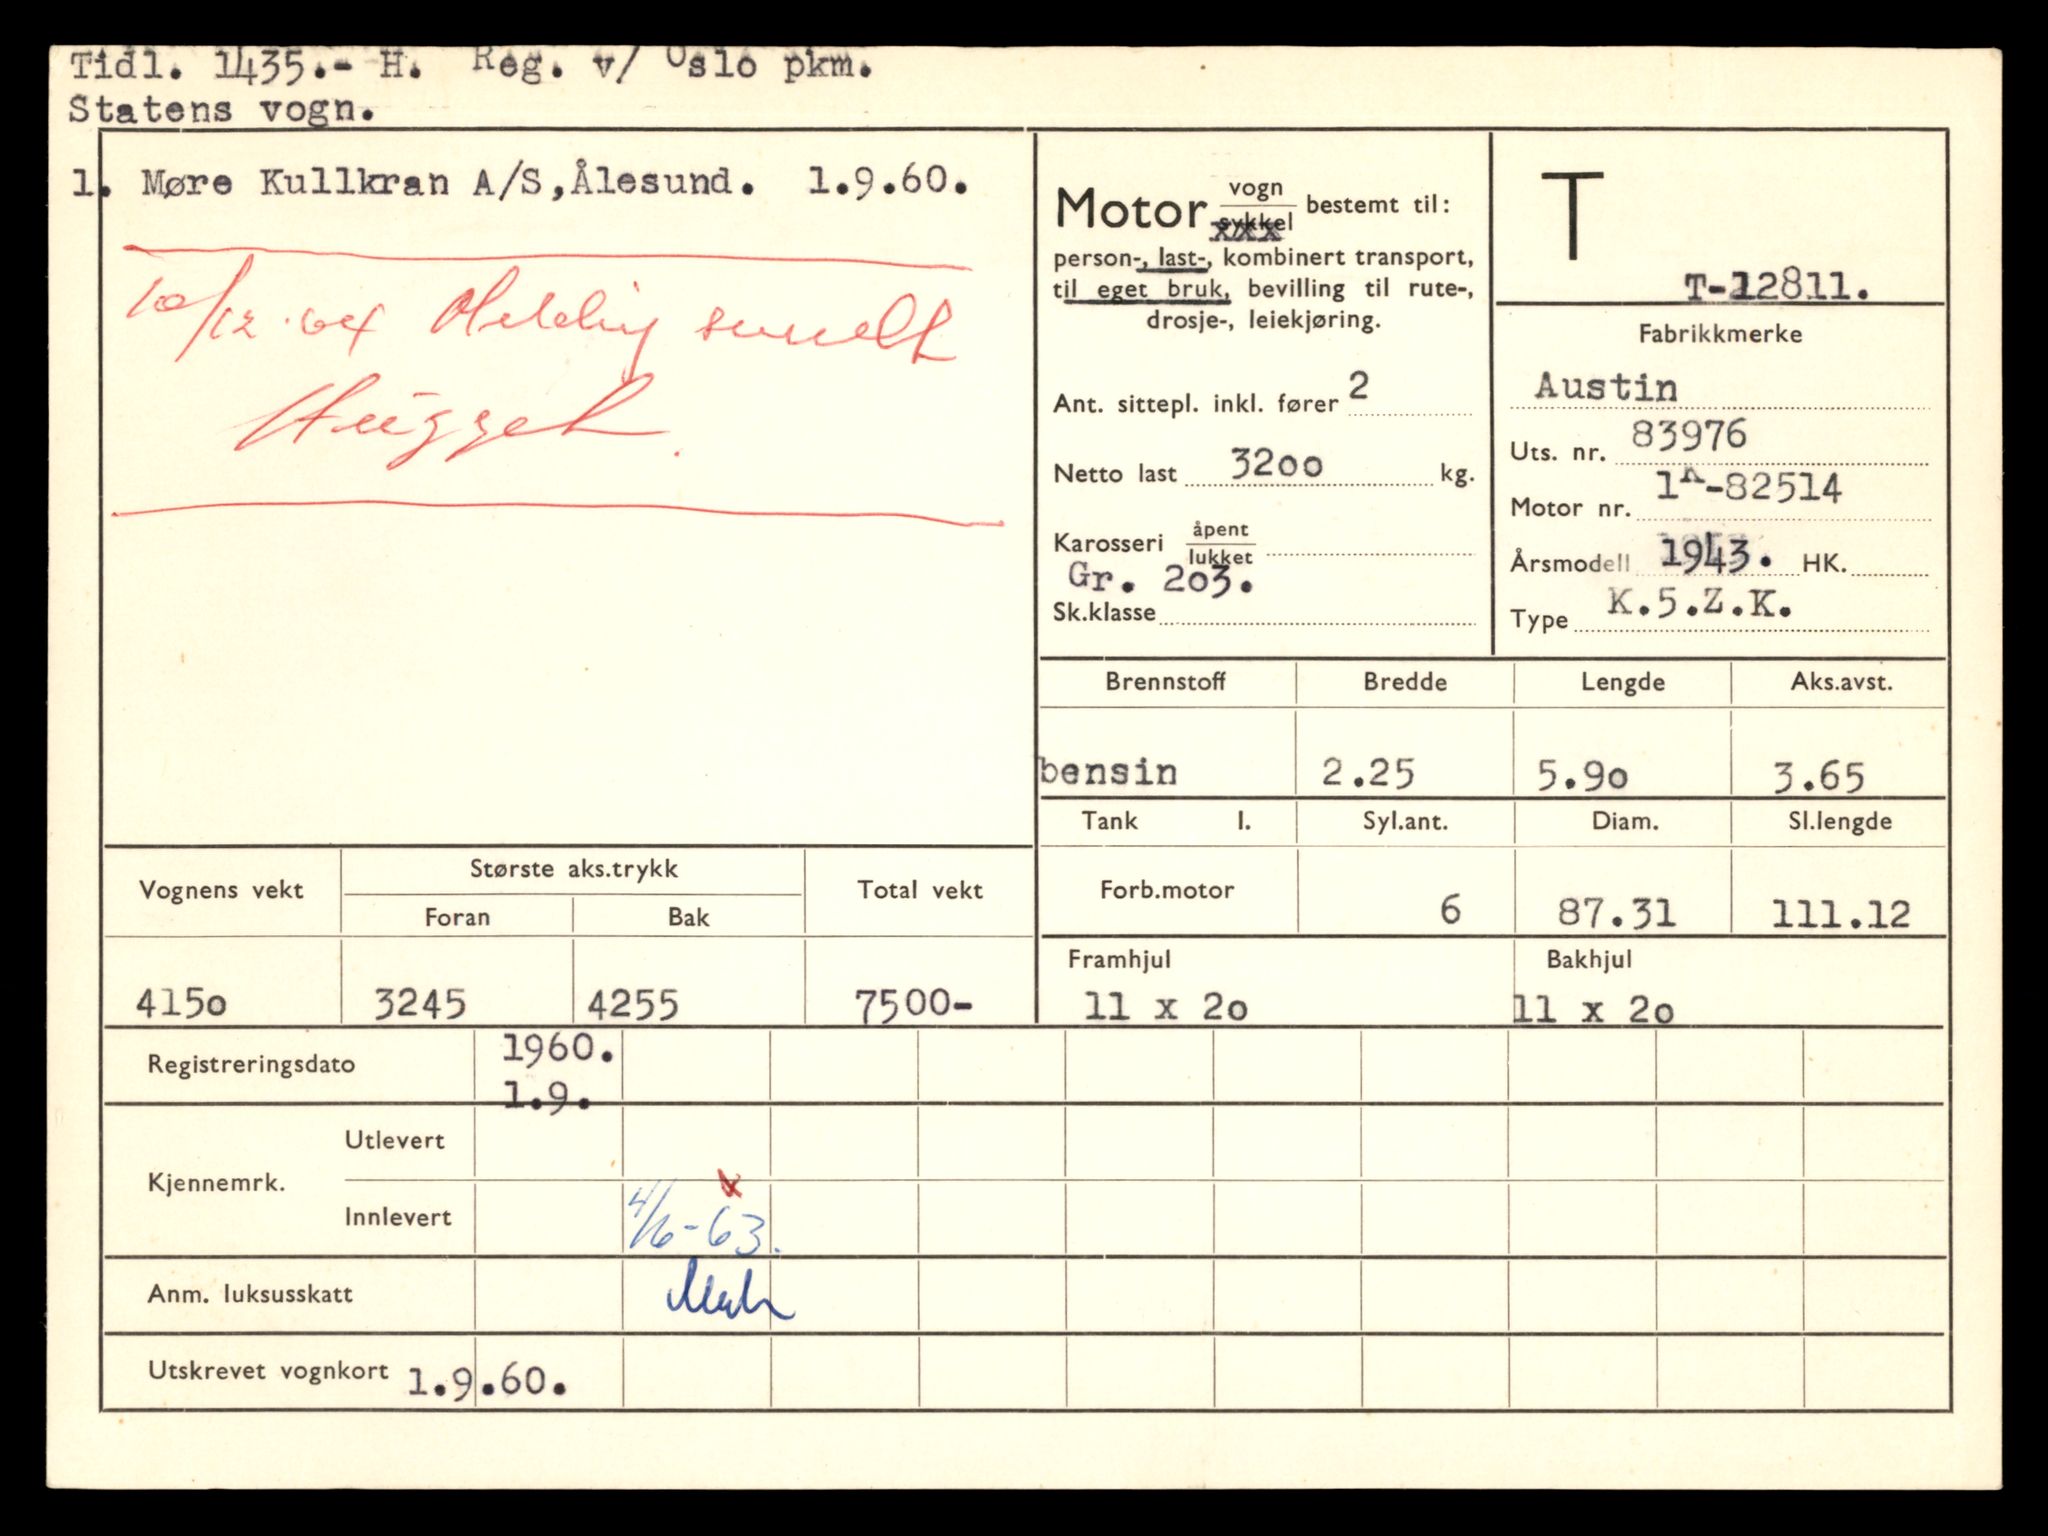 Tidl. 1435.- H. Reg. v/ Oslo pkm.
Statens vogn.
1. Møre Kullkran A/S, Ålesund. 1.9.60.
10/12.64 Melding sendt
Hugget.
Motor vogn/sykkel bestemt til:
xxx
person-, last-, kombinert transport,
til eget bruk, bevilling til rute-,
drosje-, leiekjøring.
Ant. sittepl. inkl. fører 2
Netto last 3200 kg.
Karosseri åpent/lukket
Gr. 203.
Sk.klasse
T
T-12811.
Fabrikkmerke
Austin
Uts. nr. 83976
Motor nr. 1K-82514
Årsmodell 1943. HK.
Type K.5.Z.K.
Brennstoff Bredde Lengde Aks.avst.
bensin 2.25 5.90 3.65
Tank l. Syl.ant. Diam. Sl.lengde
Forb.motor 6 87.31 111.12
Framhjul Bakhjul
11 x 20 11 x 20
Vognens vekt Største aks.trykk Total vekt
Foran Bak
4150 3245 4255 7500-
Registreringsdato 1960.
1.9.
Kjennemrk. Utlevert
Innlevert 4/6-63. x
Anm. luksusskatt
Utskrevet vognkort 1.9.60.